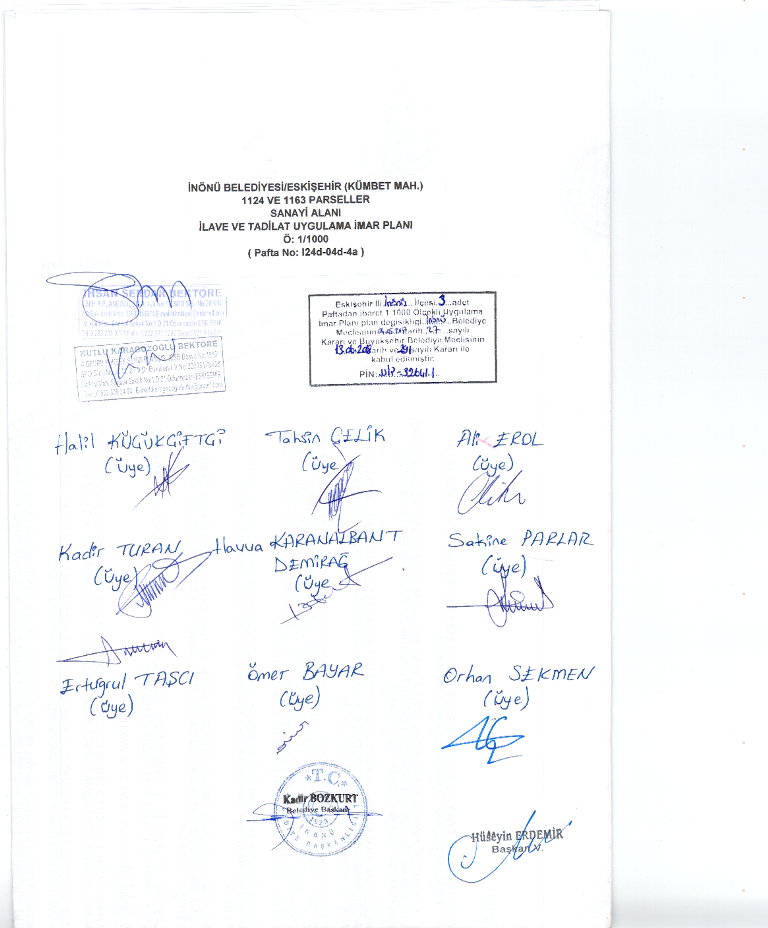 İNÖNÜ BELEDİYESİ/ESKİŞEHİR (KÜMBET MAH.)
1124 VE 1163 PARSELLER
SANAYİ ALANI
İLAVE VE TADİLAT UYGULAMA İMAR PLANI
Ö: 1/1000
( Pafta No: I24d-04d-4a )
İHSAN SERDAR BEKTÖRE
KUTLU KARAGÖZOĞLU BEKTÖRE
Eskişehir İli İnönü İlçesi 3 adet
Paftadan ibaret 1/1000 Ölçekli Uygulama
İmar Planı plan değişikliği İnönü Belediye
Meclisinin tarih 27 sayılı
Kararı ve Büyükşehir Belediye Meclisinin
tarih ve sayılı Kararı ile
kabul edilmiştir.
PİN:
Halil KÜÇÜKÇİFTÇİ
(üye)
Tahsin ÇELİK
(üye
Ali EROL
(üye)
Kadir TURAN
(üye)
Havva KARANALBANT
DEMİRAĞ
(üye
Sakine PARLAR
(üye)
Ertuğrul TAŞCI
(üye)
Ömer BAYAR
(üye)
Orhan SEKMEN
(üye)
T.C.
Kadir BOZKURT
Belediye Başkanı
İNÖNÜ
Hüseyin ERDEMİR
Başkan V.